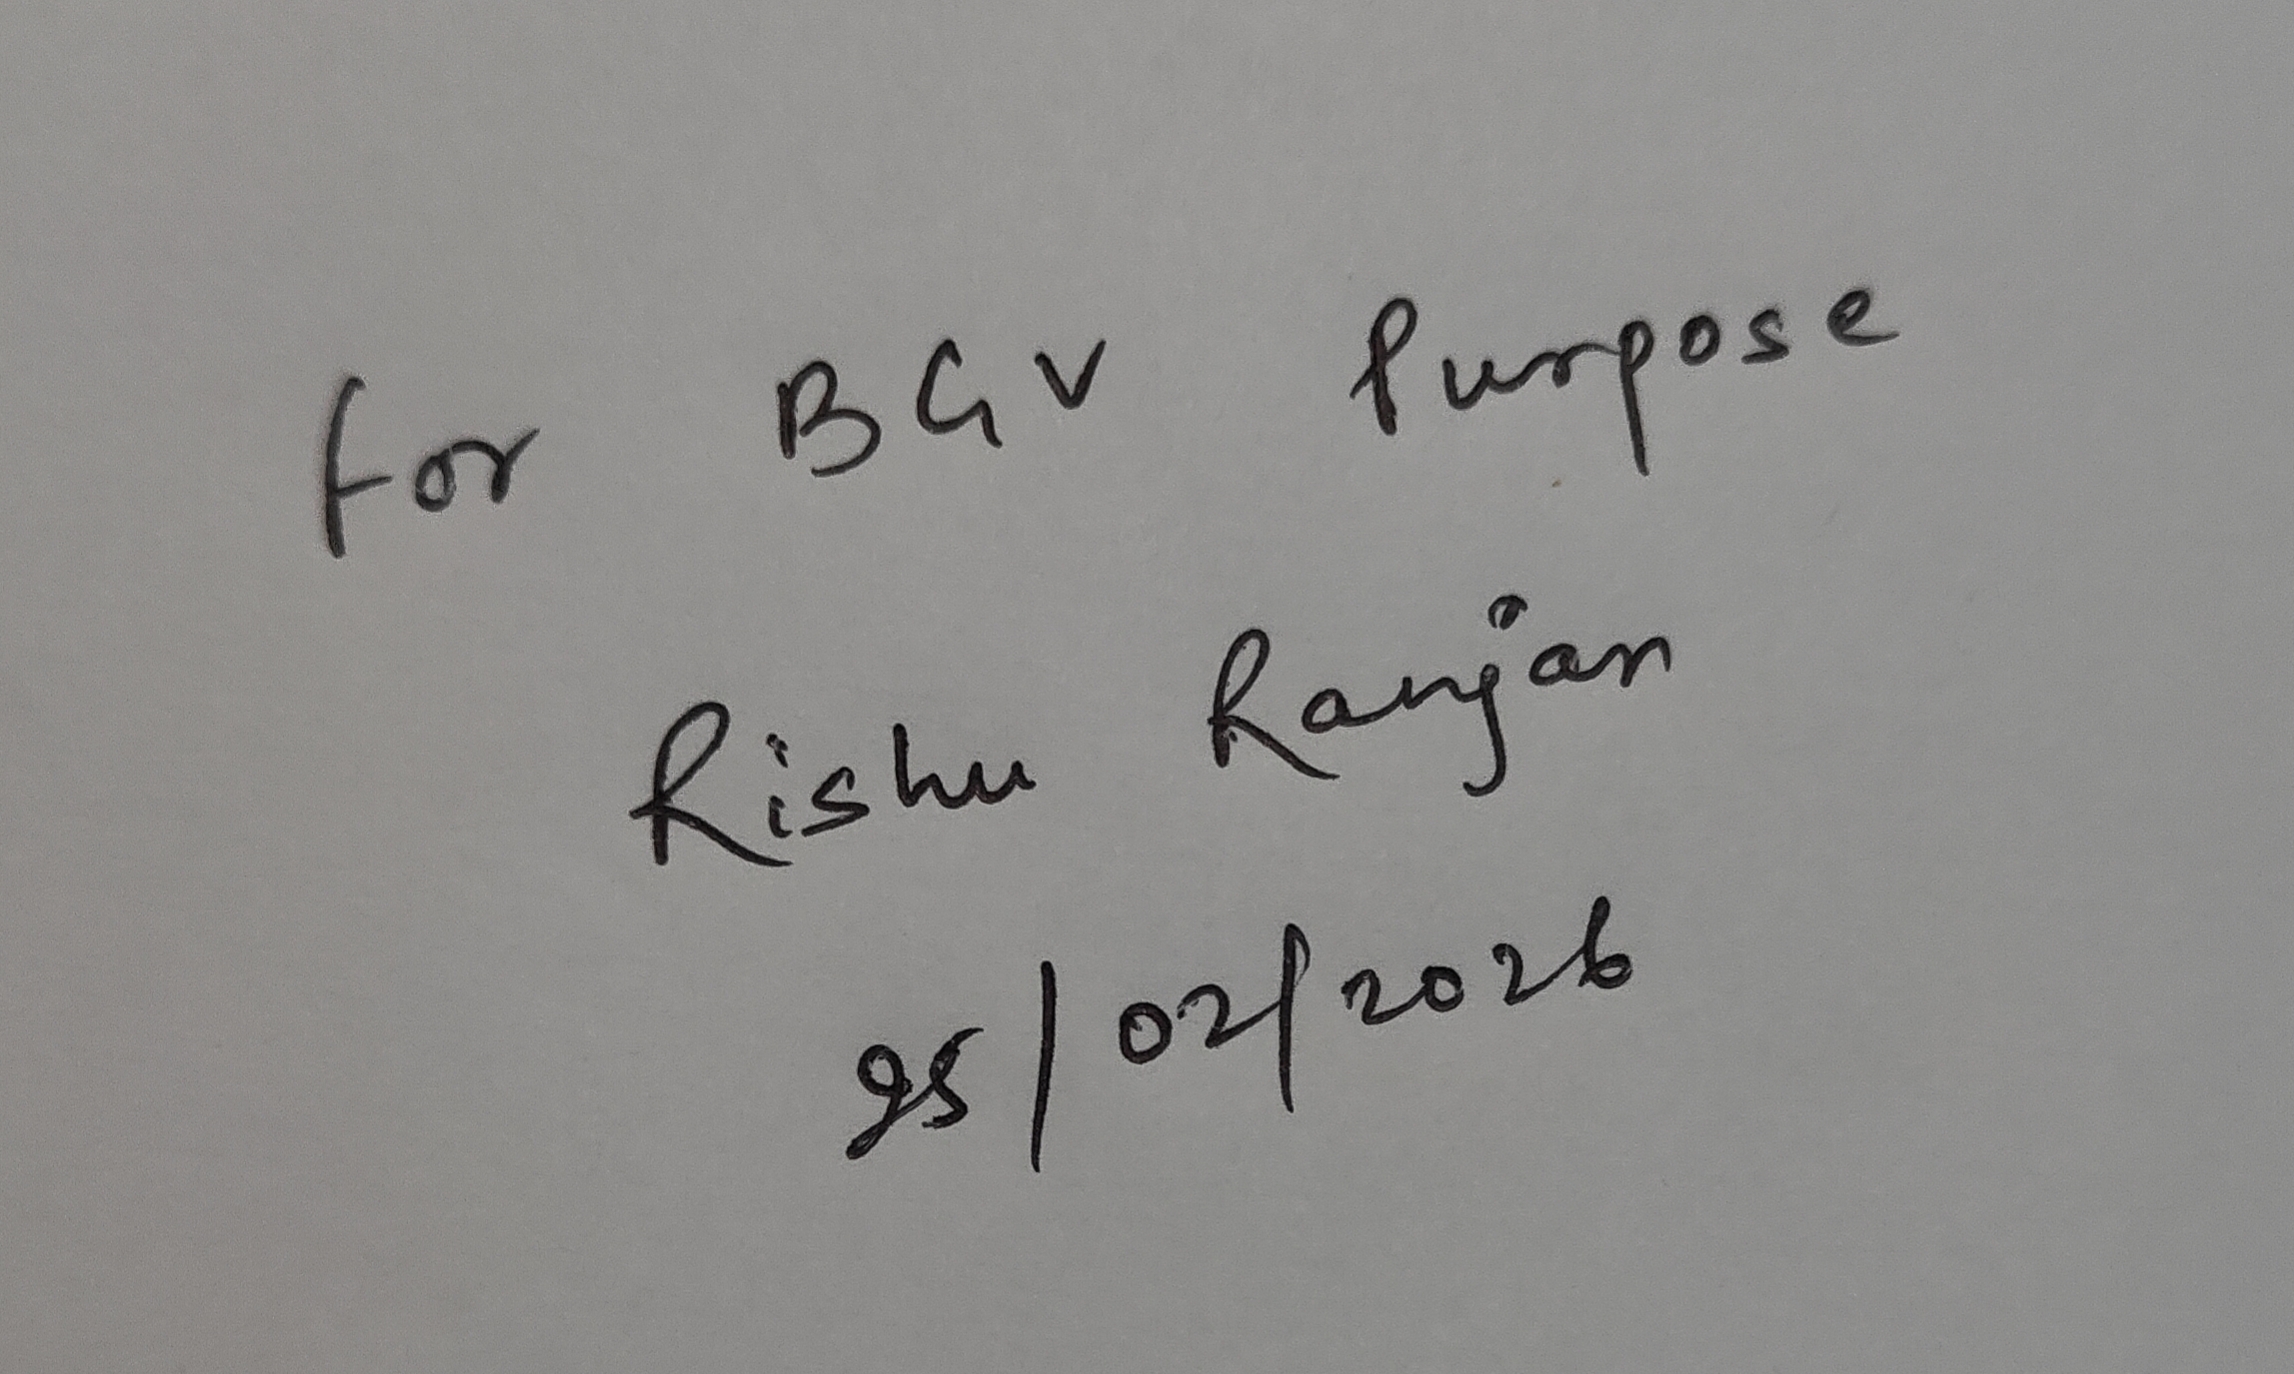 For BGV Purpose
Rishu Ranjan
25/02/2026